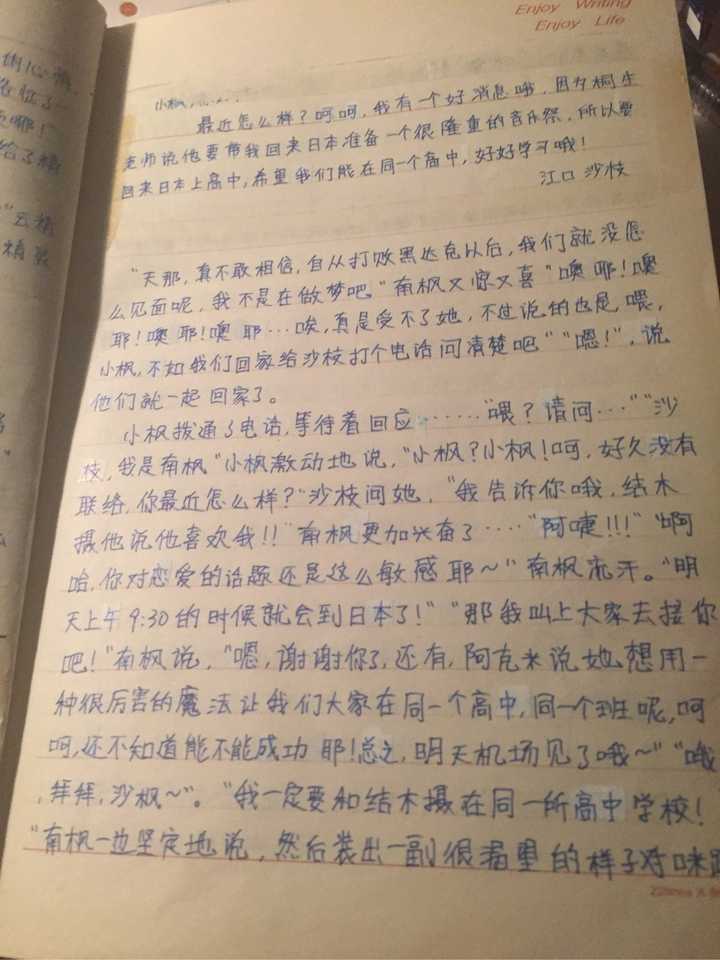 Enjoy Writing
Enjoy Life
小枫,
最近怎么样?呵呵,我有一个好消息哦,因为桐生
老师说他要带我回来日本准备一个很隆重的音乐祭,所以要
回来日本上高中,希望我们能在同一个高中,好好学习哦!
江口 沙枝
"天那,真不敢相信,自从打败黑达克以后,我们就没怎
么见面呢,我不是在做梦吧"南枫又惊又喜"噢耶!噢
耶!噢耶!噢耶…唉,真是受不了她,不过说的也是,喂,
小枫,不如我们回家给沙枝打个电话问清楚吧""嗯!",说
他们就一起回家了。
小枫拨通了电话,等待着回应……"喂?请问…""沙
枝,我是南枫"小枫激动地说,"小枫?小枫!呵,好久没有
联络,你最近怎么样?"沙枝问她,"我告诉你哦,结木
摄他说他喜欢我!!"南枫更加兴奋了…."阿嚏!!!""啊
哈,你对恋爱的话题还是这么敏感耶~"南枫流汗。"明
天上午9:30的时候就会到日本了!""那我叫上大家去接你
吧!"南枫说,"嗯,谢谢你了,还有,阿克米说她想用一
种很厉害的魔法让我们大家在同一个高中,同一个班呢,呵
呵,还不知道能不能成功耶!总之,明天机场见了哦~""哦
,拜拜,沙枫~"。"我一定要和结木摄在同一所高中学校!
"南枫一边坚定地说,然后装出一副很的样子对咪